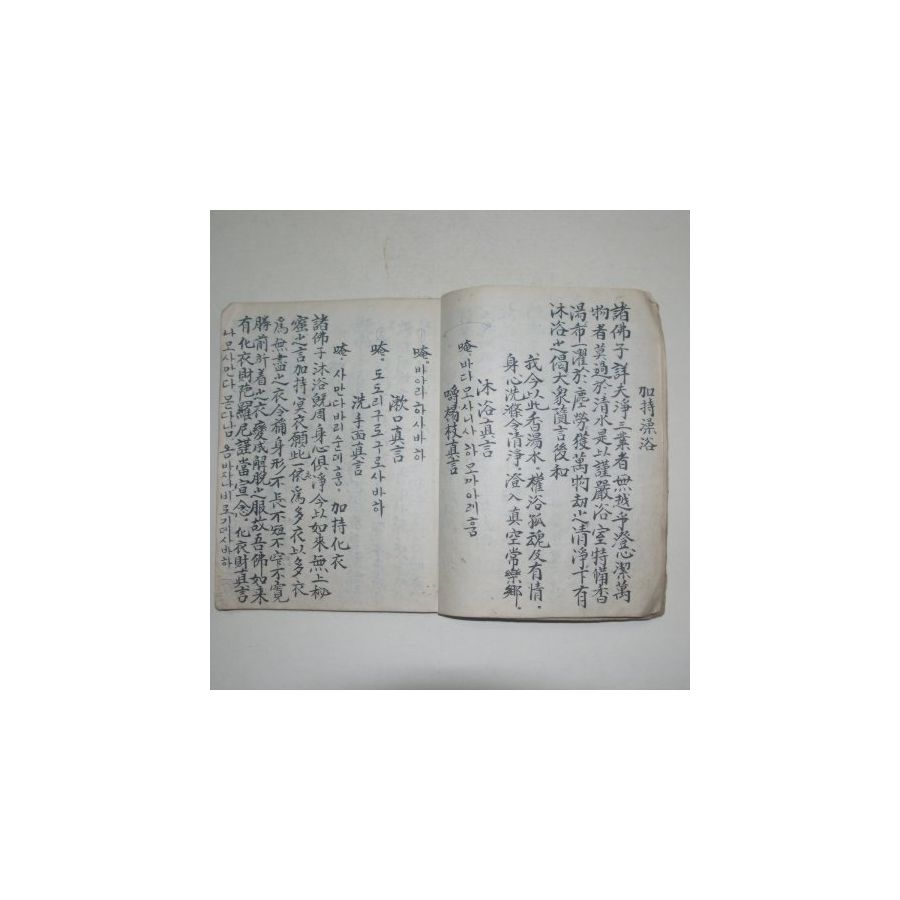 加持澡浴
諸佛子詳夫淨三業者無越乎澄心潔萬
物者莫過於清水是以謹嚴浴室特備香
湯希一濯於塵勞獲萬劫之清淨下有
沐浴之偈大衆隨言後和
我今以此香湯水.權浴孤魂及有情.
身心洗滌令清淨.澄入真空常樂鄉.
沐浴眞言
唵 바다모사니사하모가아례훔
嚼楊枝真言
唵.바아라하사바하
漱口真言
唵.도도리구로구로사바하
洗手面真言
唵.사만다바리순데훔. 加持化衣
諸佛子沐浴旣周身心俱淨今以如來無上秘
密之言加持冥衣願此一衣爲多衣以多衣
爲無盡之衣令稱身形不長不短不窄不寬
勝前所着之衣變成解脫之服故吾佛如来
有化衣財陀羅尼謹當宣念.化衣財真言
나모사만다.못다남.옹바자나비로기데사바하